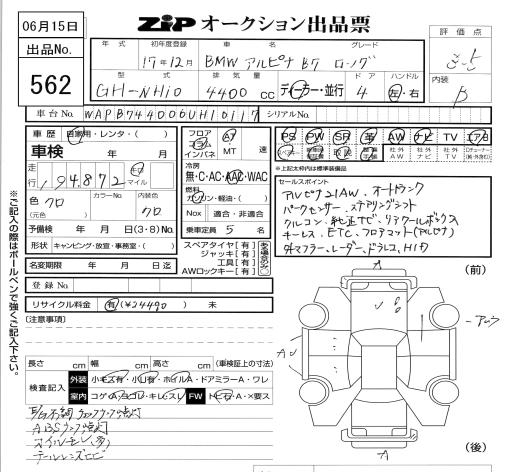 06月15日
ZIP オークション出品票
出品No.
562
年式 初年度登録 車名 グレード
17年12月 BMW アルピナ B7 ロング
型式 排気量 ドア ハンドル
GH-NH10 4400 cc ディーラー・並行 4 左・右
評価点
内装
B
車台No. WAPB744006UH10117
シリアルNo.
車歴 自家用・レンタ・( )
車検 年 月
走行 194,872 キロ マイル
色 クロ (元色) カラーNo. 内装色 クロ
予備検 年 月 日(3・8)No.
形状 キャンピング・放送・事務室・( )
名変期限 年 月 日迄
登録No.
リサイクル料金 有(¥24490) 未
(注意事項)
フロア コラム インパネ AT MT 速
冷房 無・C・AC・AAC・WAC
燃料 ガソリン・軽油・( )
Nox 適合・非適合
乗車定員 5 名
スペアタイヤ[有]
ジャッキ[有]
工具[有]
AWロックキー[有]
PS PW SR 革 AW ナビ TV エアB
社外AW 社外ナビ 社外TV
*上記太枠内は標準装備品
セールスポイント
アルピナ21AW、オートトランク
パークセンサー、ステアリングシフト
クルコン、純正ナビ、リアクールボックス
キーレス、ETC、フロアマット(アルピナ)
外マフラー、レーダー、ドラレコ、HID
※ご記入の際はボールペンで強くご記入下さい。
(前)
A
AU
A
(後)
長さ cm 幅 cm 高さ cm (車検証上の寸法)
検査記入 外装 小キズ有・小凹有・ホイルA・ドアミラーA・ワレ
室内 コゲA・ヨゴレ・キレ・スレ FW トビ石・A・×要ス
ABSランプ点灯
オイルモレ(多)
テールレンズヒビ